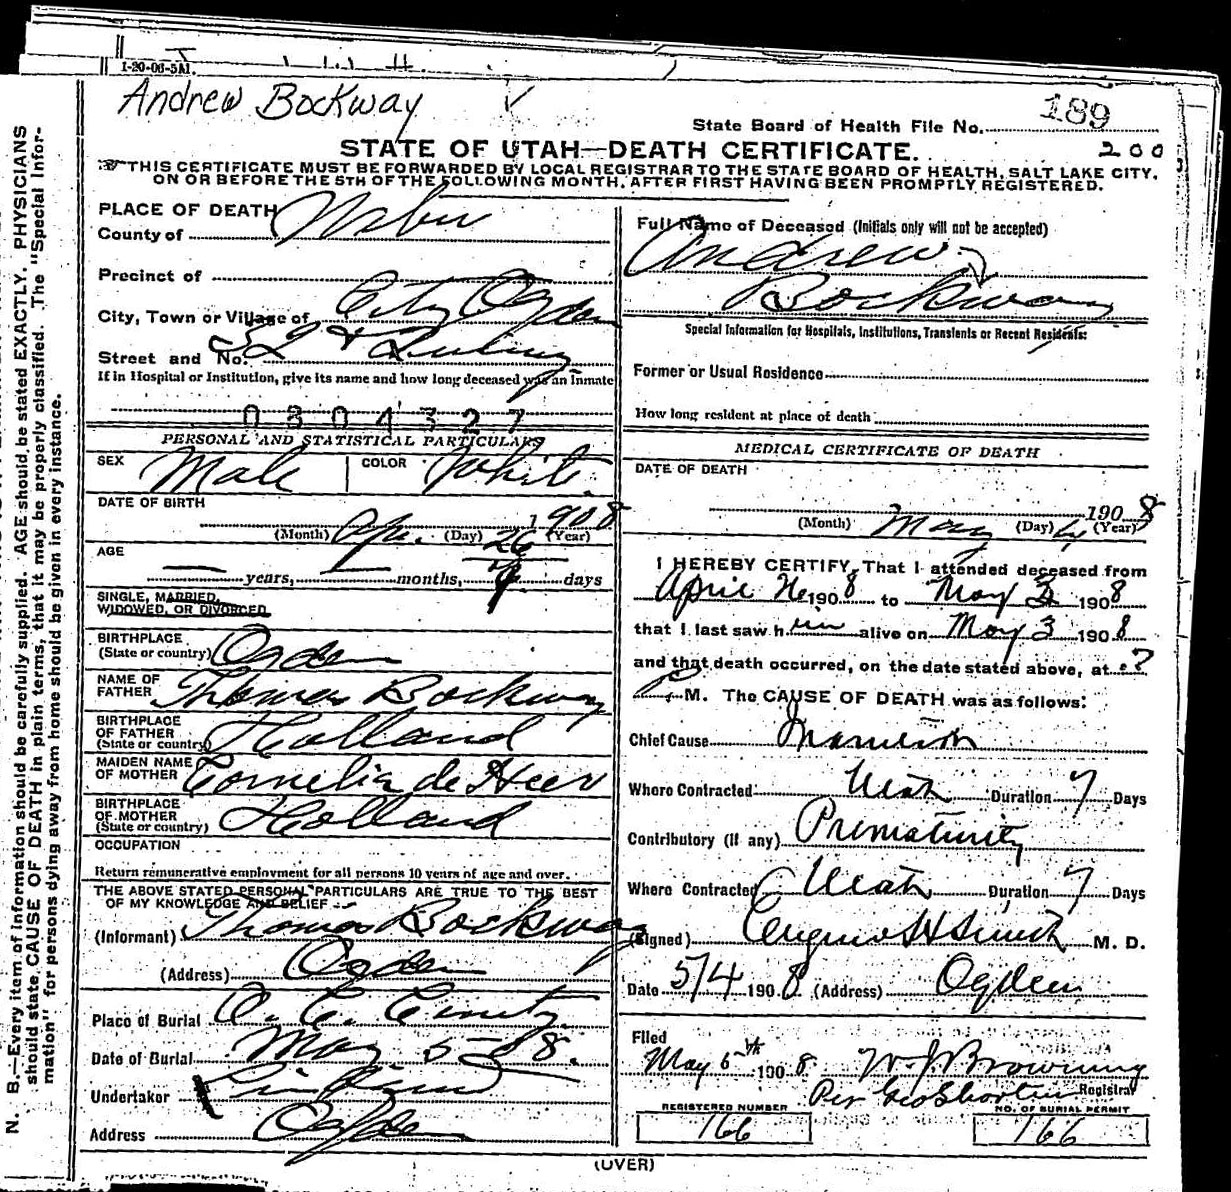 1-20-06-5M.
Andrew Bockway
State Board of Health File No. 189
200
STATE OF UTAH—DEATH CERTIFICATE.
THIS CERTIFICATE MUST BE FORWARDED BY LOCAL REGISTRAR TO THE STATE BOARD OF HEALTH, SALT LAKE CITY,
ON OR BEFORE THE 5TH OF THE FOLLOWING MONTH, AFTER FIRST HAVING BEEN PROMPTLY REGISTERED.
PLACE OF DEATH
County of Weber
Precinct of
City, Town or Village of City Ogden
Street and No.
If in Hospital or Institution, give its name and how long deceased was an Inmate
0304327
PERSONAL AND STATISTICAL PARTICULARS
SEX Male COLOR White
DATE OF BIRTH
1908
(Month) Apr. (Day) 26 (Year)
AGE
— years, — months, days
SINGLE, MARRIED,
WIDOWED, OR DIVORCED
BIRTHPLACE
(State or country) Ogden
NAME OF
FATHER Thomas Bockway
BIRTHPLACE
OF FATHER
(State or country) Holland
MAIDEN NAME
OF MOTHER Cornelia de Heer
BIRTHPLACE
OF MOTHER
(State or country) Holland
OCCUPATION
Return remunerative employment for all persons 10 years of age and over.
THE ABOVE STATED PERSONAL PARTICULARS ARE TRUE TO THE BEST
OF MY KNOWLEDGE AND BELIEF
(Informant) Thomas Bockway
(Address) Ogden
Place of Burial O. C. Cemetry
Date of Burial May 5-08.
Undertaker
Address Ogden
Full Name of Deceased (Initials only will not be accepted)
Andrew
Bockway
Special Information for Hospitals, Institutions, Transients or Recent Residents:
Former or Usual Residence
How long resident at place of death
MEDICAL CERTIFICATE OF DEATH
DATE OF DEATH
1908
(Month) May (Day) 4 (Year)
I HEREBY CERTIFY, That I attended deceased from
April 26 1908 to May 3 1908
that I last saw him alive on May 3 1908
and that death occurred, on the date stated above, at ?
P M. The CAUSE OF DEATH was as follows:
Chief Cause Inanition
Where Contracted Utah Duration 7 Days
Contributory (if any) Prematurity
Where Contracted Utah Duration 7 Days
(Signed) Eugene H Smith M. D.
Date 5/4 1908 (Address) Ogden
Filed
May 5th 1908 W. J. Browning
Per Geo Shorten Registrar
REGISTERED NUMBER
166
NO. OF BURIAL PERMIT
166
(OVER)
N. B.—Every item of information should be carefully supplied. AGE should be stated EXACTLY. PHYSICIANS
should state CAUSE OF DEATH in plain terms, that it may be properly classified. The "Special Infor-
mation" for persons dying away from home should be given in every instance.